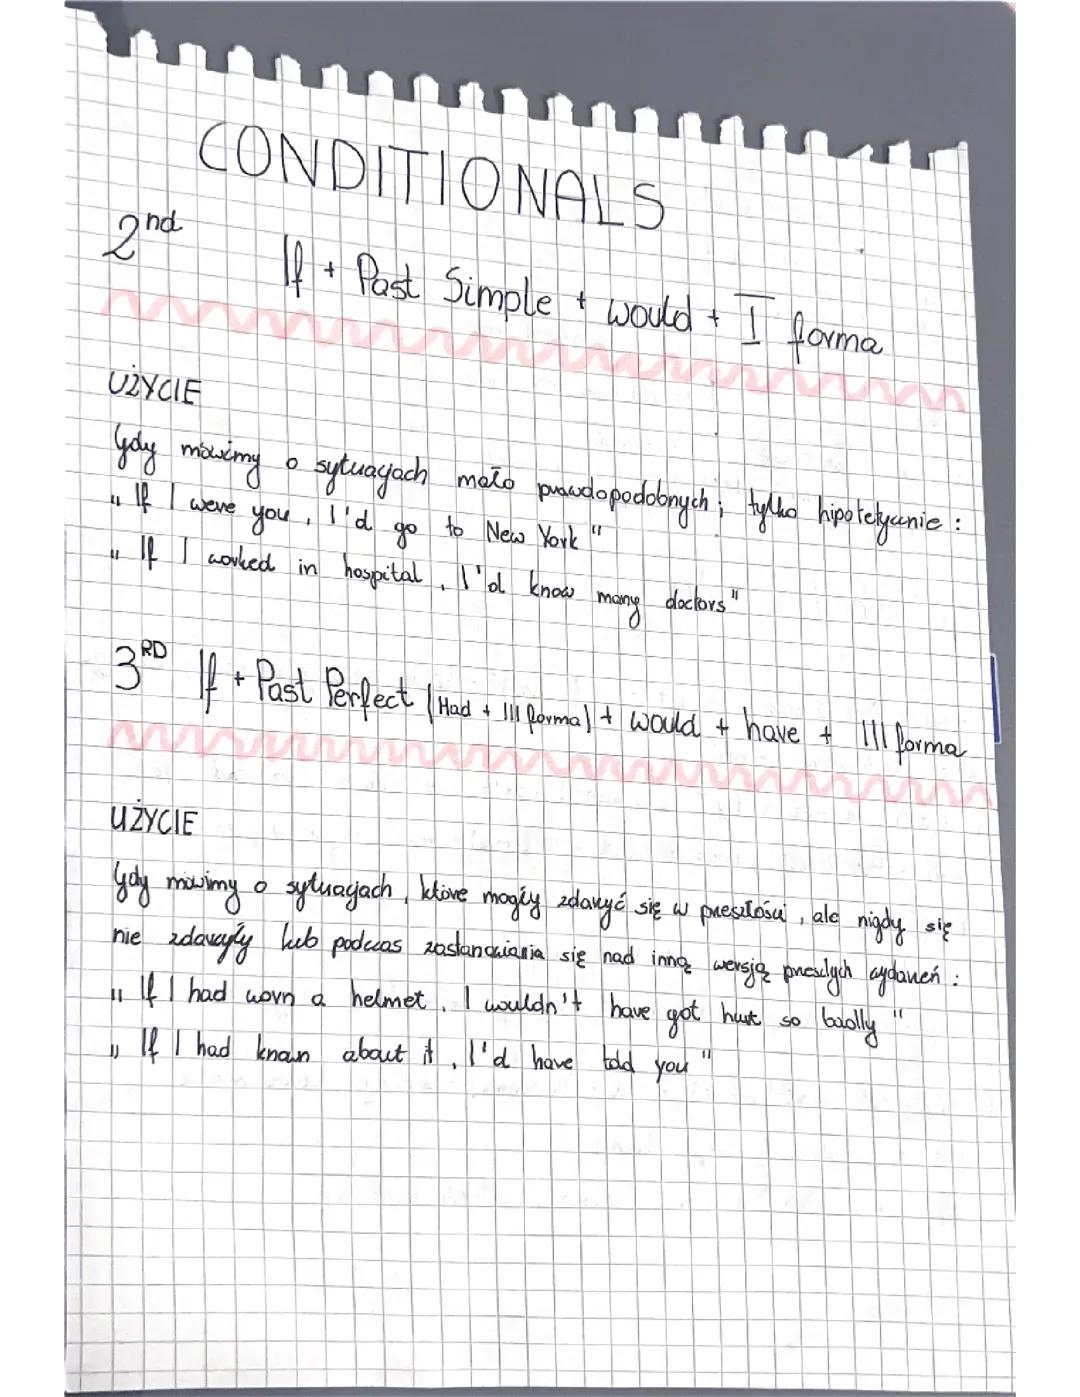 CONDITIONALS
2nd If + Past Simple + would + I forma
UŻYCIE
Gdy mówimy o sytuacjach mało prawdopodobnych; tylko hipotetycznie :
„ If I were you, I'd go to New York "
„ If I worked in hospital, I'd know many doctors"
3RD If + Past Perfect (Had + III forma) + would + have + III forma
UŻYCIE
Gdy mówimy o sytuacjach, które mogły zdarzyć się w przeszłości, ale nigdy się
nie zdarzyły lub podczas zastanawiania się nad inną wersją przeszłych wydarzeń :
„ If I had worn a helmet, I wouldn't have got hurt so badly "
„ If I had known about it, I'd have told you "